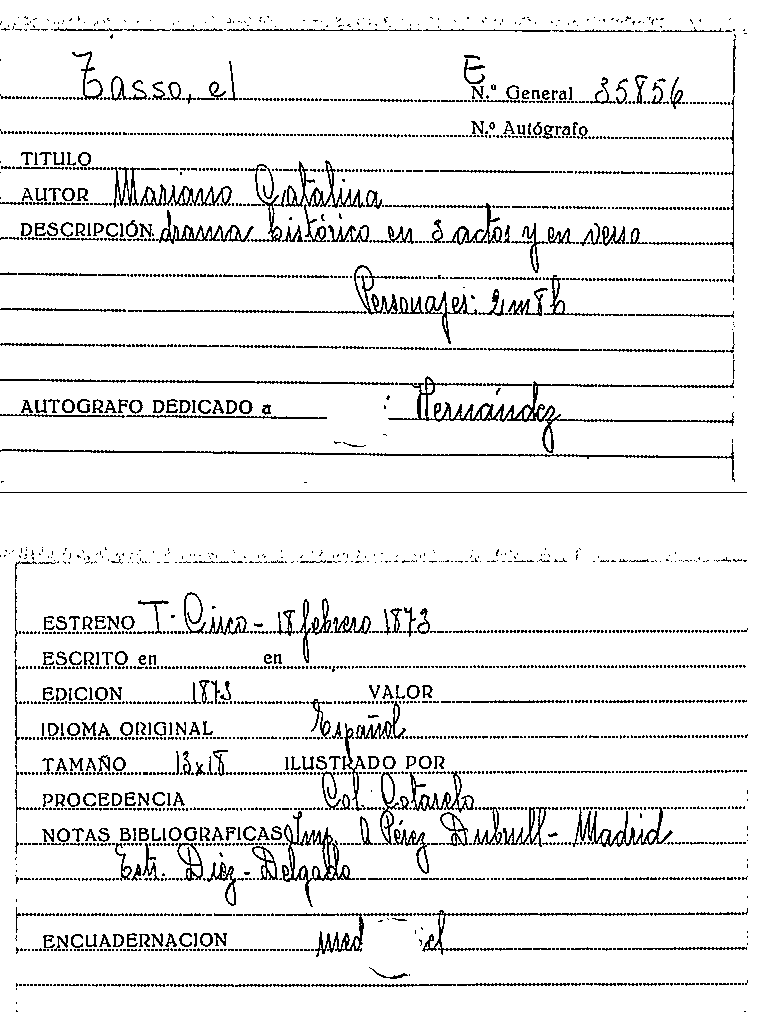 Tasso, el
E
N.º General 35856
N.º Autógrafo
TITULO
AUTOR Mariano Catalina
DESCRIPCIÓN drama histórico en 3 actos y en verso
Personajes: 2m 8h
AUTOGRAFO DEDICADO a Hernández
ESTRENO T. Circo - 18 febrero 1873
ESCRITO en en
EDICION 1873 VALOR
IDIOMA ORIGINAL Español
TAMAÑO 13x18 ILUSTRADO POR
PROCEDENCIA Col. Cotarelo
NOTAS BIBLIOGRAFICAS Imp. A Pérez Dubrull - Madrid
Estr. Díez - Delgado
ENCUADERNACION